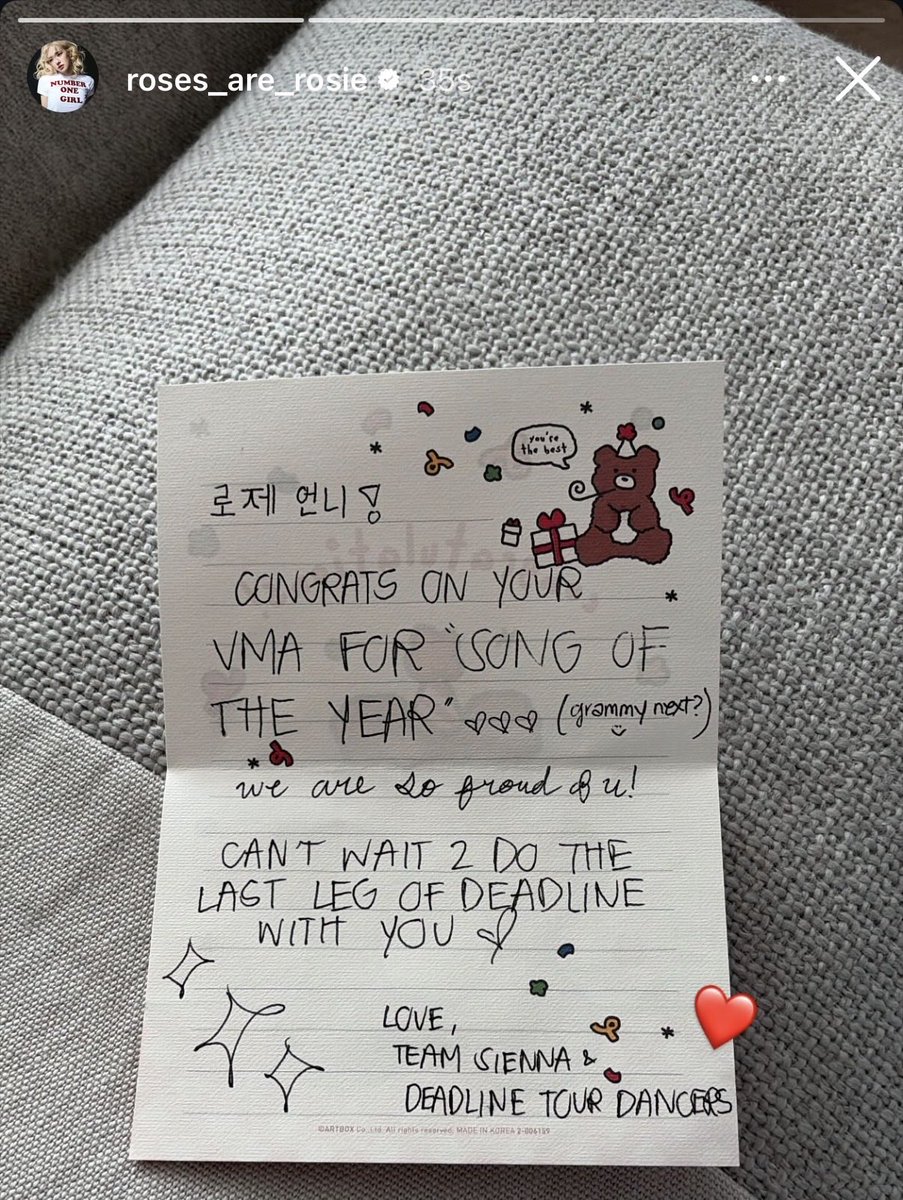 roses_are_rosie 35s
NUMBER
ONE
GIRL
you're
the best
로제 언니!
CONGRATS ON YOUR
VMA FOR "SONG OF
THE YEAR" (grammy next?)
we are so proud of u!
CAN'T WAIT 2 DO THE
LAST LEG OF DEADLINE
WITH YOU
LOVE,
TEAM SIENNA &
DEADLINE TOUR DANCERS
©ARTBOX Co.,Ltd. All rights reserved. MADE IN KOREA 2-006159